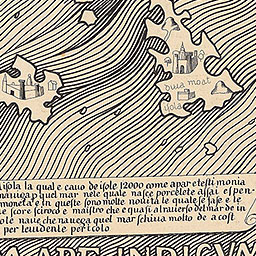 duia moal
isola
isola la qual e cavo de isole 12000 come apar testimonia
navega p quel mar nele quale nasce porcelete assai e spen
moneta e in queste sono molte novita le quale se fase e le
core siroco e maistro che e quasi al traverso del mar de in
ole nave che navega quel mar schiva molto de a cost
per levidente pericolo
MAR INDICUM